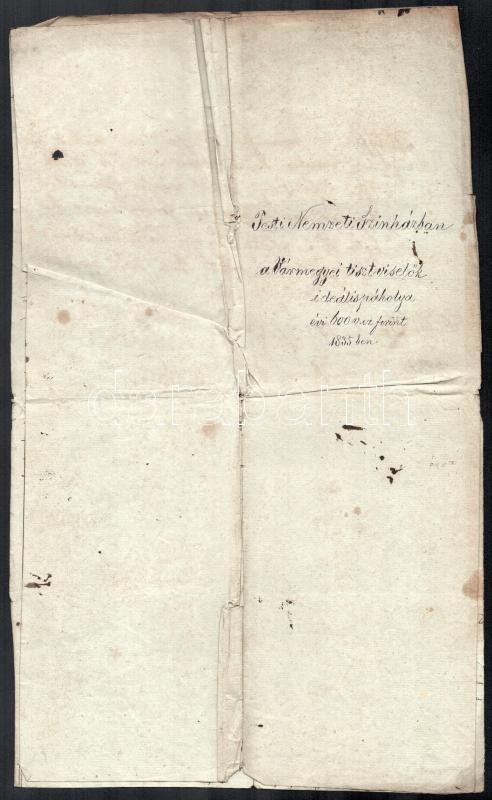 Pesti Nemzeti Szinházban
a Vármegyei tisztviselők
ideálispáholya
évi 600 v.cz forint
1835 ben.
darabanth